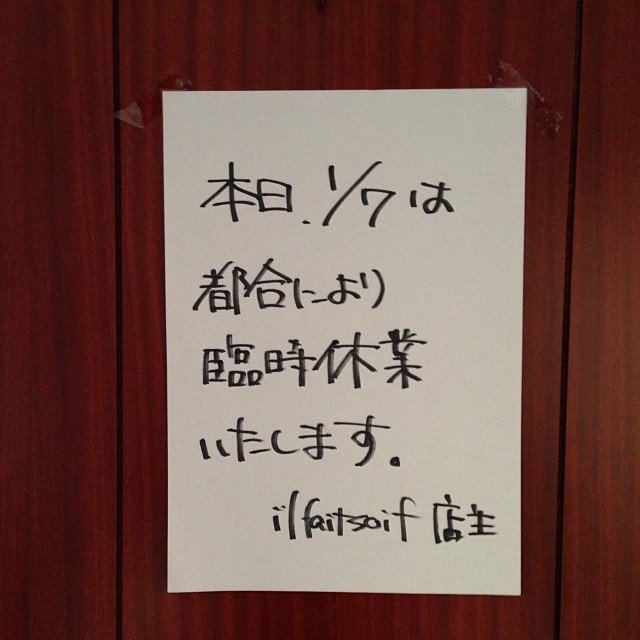 本日、1/7は
都合により
臨時休業
いたします。
ilfaitsoif 店主